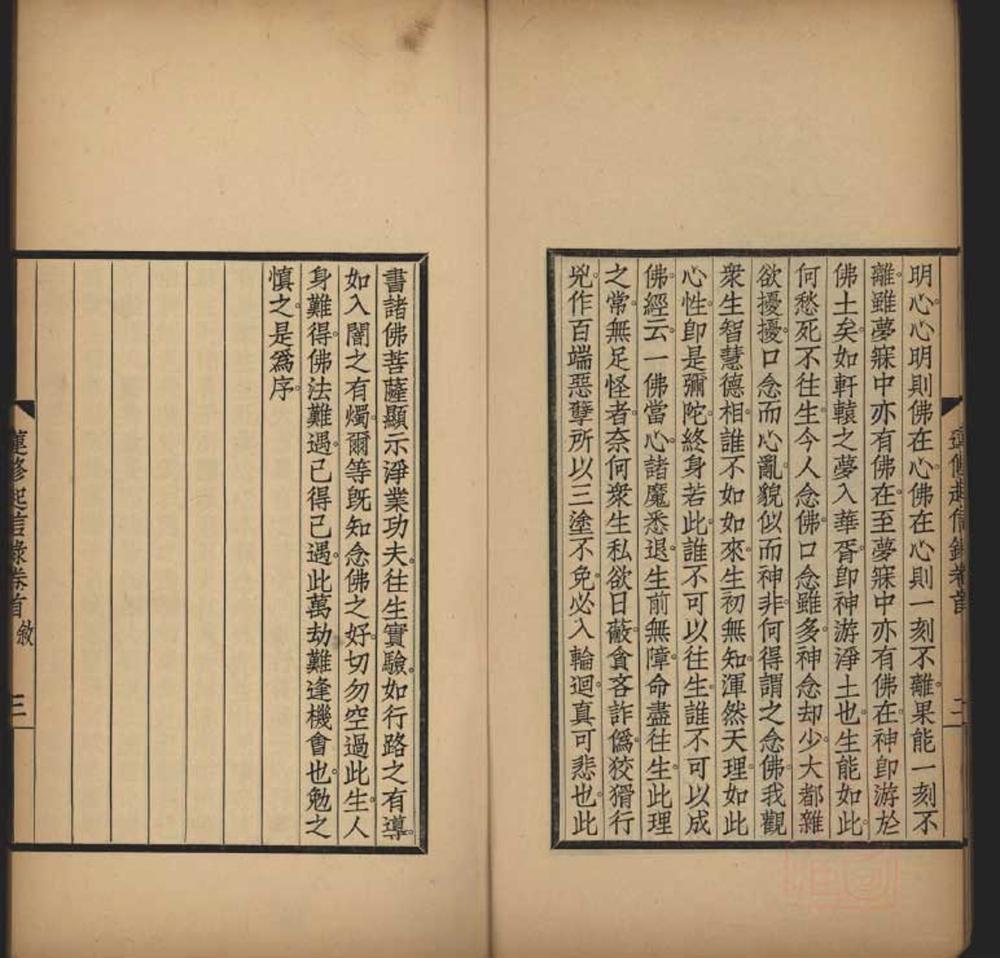 蓮修起信錄卷首
二
明心。心明則佛在心。佛在心則一刻不離。果能一刻不
離。雖夢寐中亦有佛在。至夢寐中亦有佛在。神卽游於
佛土矣。如軒轅之夢入華胥。卽神游淨土也。生能如此。
何愁死不往生。今人念佛。口念雖多。神念却少。大都雜
欲擾擾。口念而心亂。貌似而神非。何得謂之念佛。我觀
衆生智慧德相。誰不如如來。生初無知。渾然天理。如此
心性。卽是彌陀。終身若此。誰不可以往生。誰不可以成
佛。經云。一佛當心。諸魔悉退。生前無障。命盡往生。此理
之常。無足怪者。奈何衆生私欲日蔽。貪吝詐僞。狡猾行
兇。作百端惡孽。所以三塗不免。必入輪迴。真可悲也。此
書諸佛菩薩顯示淨業功夫。往生實驗。如行路之有導。
如入闇之有燭。爾等旣知念佛之好。切勿空過此生。人
身難得。佛法難遇。已得已遇。此萬劫難逢機會也。勉之
慎之。是爲序。
蓮修起信錄卷首 敘
三